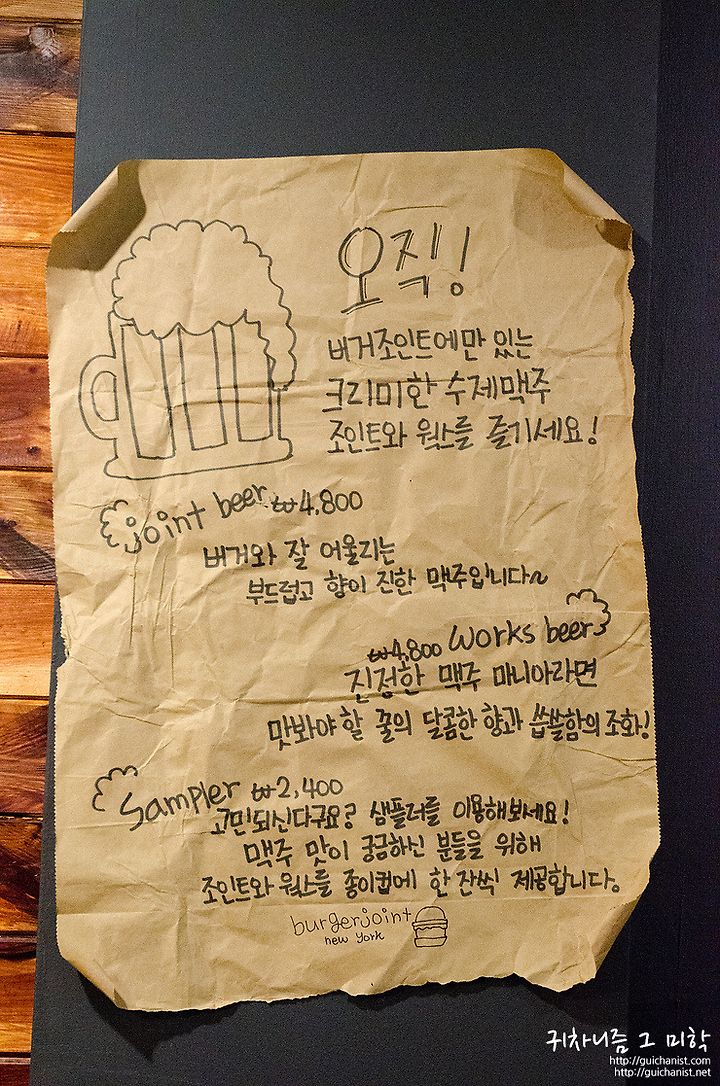 오직!
버거조인트에만 있는
크리미한 수제맥주
조인트와 웍스를 즐기세요!
joint beer ₩4,800
버거와 잘 어울리는
부드럽고 향이 진한 맥주입니다~
₩4,800 works beer
진정한 맥주 마니아라면
맛봐야할 꿀의 달콤한 향과 씁쓸함의 조화!
Sampler ₩2,400
고민되신다구요? 샘플러를 이용해보세요!
맥주 맛이 궁금하신 분들을 위해
조인트와 웍스를 종이컵에 한 잔씩 제공합니다.
burgerjoint
new york
귀차니즘 그 미학
http://guichanist.com
http://guichanist.net